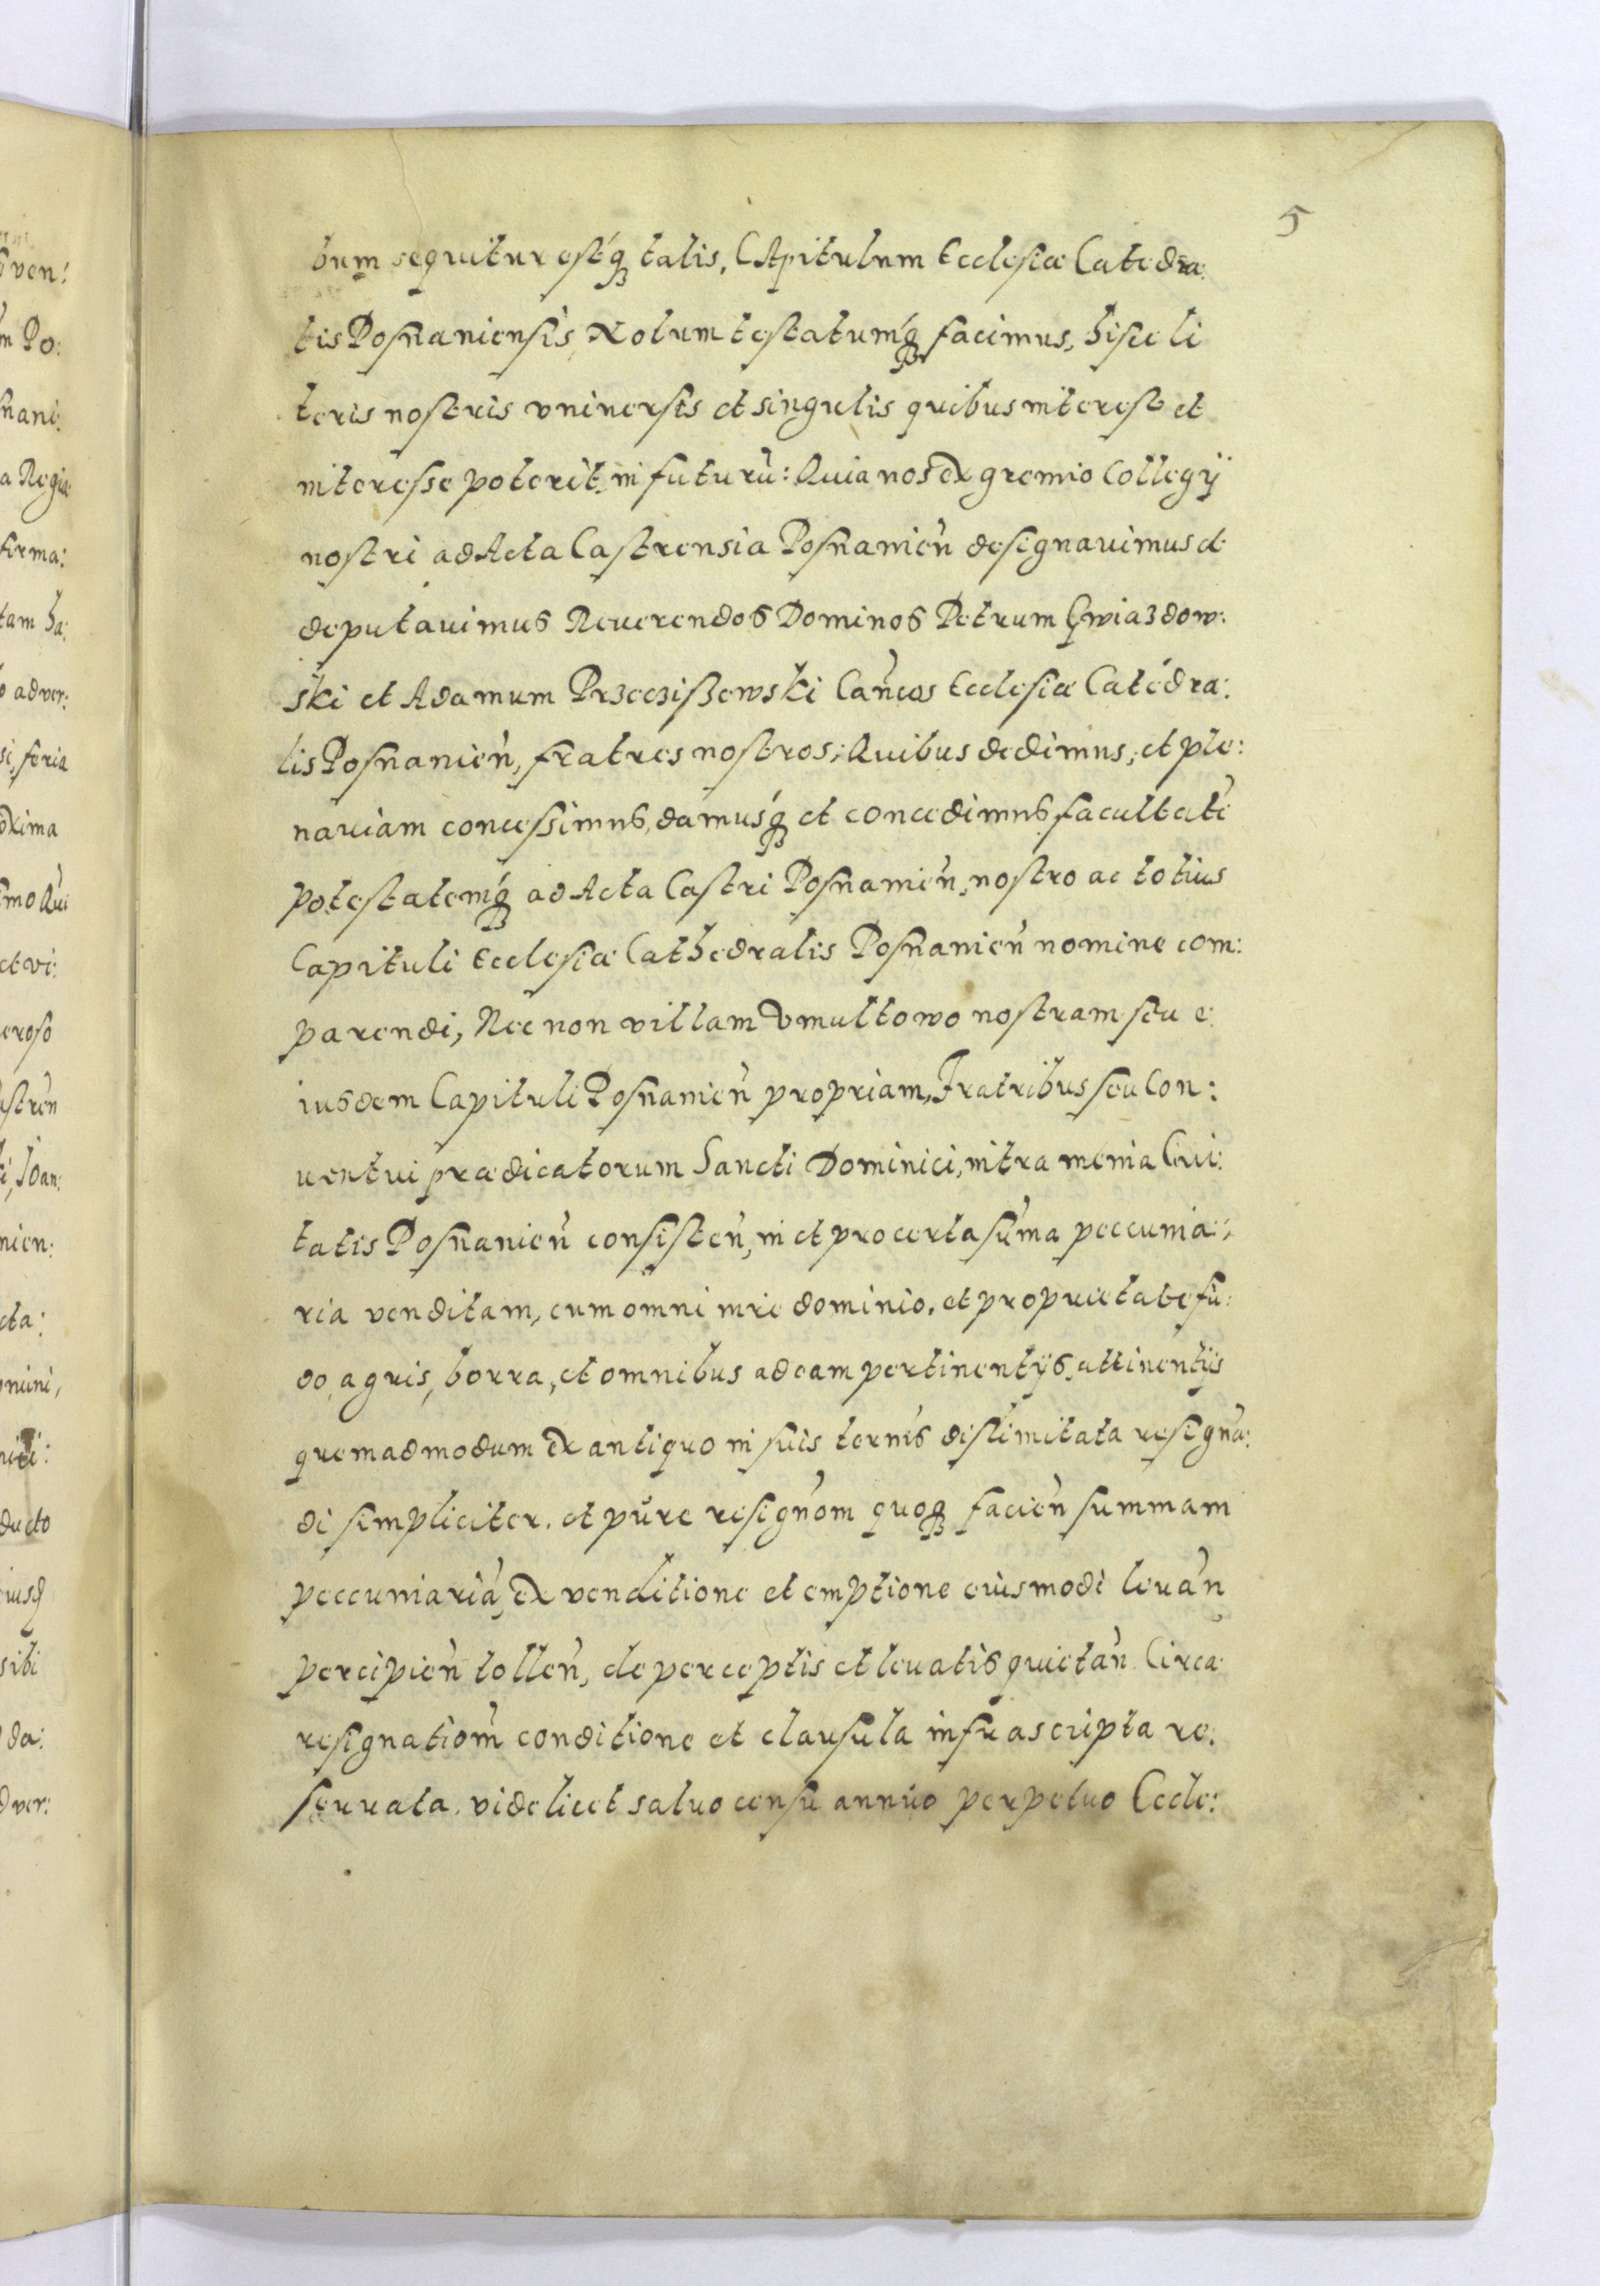 5
bum sequitur estq́ꝫ talis, CApitulum Ecclesiæ Catedra
lis Posnaniensis, Notum testatumq́ꝫ facimus, hisce li
teris nostris vniuersis et singulis quibus interest et
interesse poterit, in futurũ: Quia nos ex gremio Collegij
nostri ad Acta Castrensia Posnanień designauimus et
deputauimus Reuerendos Dominos Petrum Gwiazdow:
ski et Adamum Przeczißewski Cańcos Ecclesiæ Catédra:
lis Posnanień, fratres nostros; Quibus dedimus, et ple:
nariam concessimus, damusq́ꝫ et concedimus facultatẽ
potestatemq́ꝫ ad Acta Castri Posnanień, nostro ac totius
Capituli Ecclesiæ Cathedralis Posnanień nomine com:
parendi, Nec non villam Vmultowo nostram seu e
iusdem Capituli Posnanień propriam, Fratribus seu Con:
uentui prædicatorum Sancti Dominici, intra menia Ciui:
tatis Posnanień consisteń, in et pro certa sũma peccunia:
ria venditam, cum omni iure dominio, et proprietate fũ:
do, agris, borra, et omnibus ad eam pertinentijs, attinentijs
quemadmodum ex antiquo in suis termis dislimitata resignã:
di simpliciter, et pure resignõm quoqꝫ facień summam
peccuniariã, ex venditione et emptione eiusmodi leuań
percipień tolleń, de perceptis et leuatis quietań Circa
resignatiom̃ conditione et clausula infrascripta re:
seruata, videlicet saluo censu annuo perpetuo Eccle: